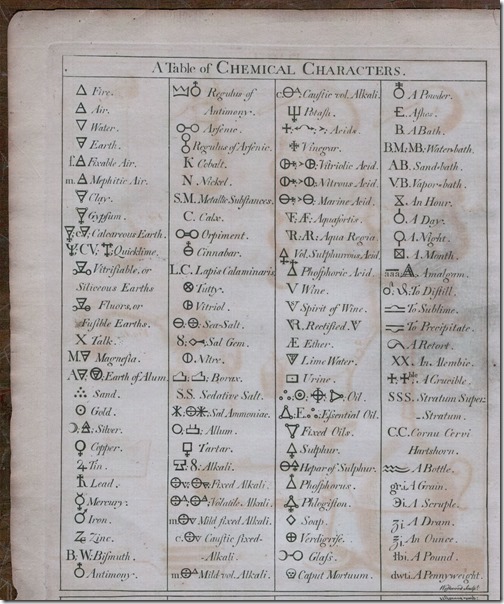 A Table of CHEMICAL CHARACTERS.
Fire.
Air.
Water.
Earth.
f. Fixable Air.
m. Mephitic Air.
Clay.
Gypsum.
Calcareous Earth.
CV: Quicklime.
Vitrifiable, or
Siliceous Earths
Fluors, or
Fusible Earths.
X Talk.
M. Magnesia.
A. Earth of Alum.
Sand.
Gold.
Silver.
Copper.
Tin.
Lead.
Mercury.
Iron.
Zinc.
B: W: Bismuth.
Antimony.
Regulus of
Antimony.
Arsenic.
Regulus of Arsenic.
K Cobalt.
N. Nickel.
S.M. Metallic Substances.
C. Calx.
Orpiment.
Cinnabar.
L.C. Lapis Calaminaris.
Tutty.
Vitriol.
Sea-Salt.
Sal Gem.
Nitre.
Borax.
S.S. Sedative Salt.
Sal Ammoniac.
Allum.
Tartar.
Alkali.
Fixed Alkali.
Volatile Alkali.
m. Mild fixed Alkali.
c. Caustic fixed-
Alkali.
m. Mild vol. Alkali.
c. Caustic vol. Alkali.
Potash.
Acids.
Vinegar.
Vitriolic Acid.
Nitrous Acid.
Marine Acid.
Æ: Aquafortis.
R: Aqua Regia.
Vol. Sulphurous Acid.
Phosphoric Acid.
V Wine.
Spirit of Wine.
R. Rectified. V
Æ Ether.
Lime Water.
Urine.
Oil.
E. Essential Oil.
Fixed Oils.
Sulphur.
Hepar of Sulphur.
Phosphorus.
Phlogiston.
Soap.
Verdigrise.
Glass.
Caput Mortuum.
A Powder.
E. Ashes.
B A Bath.
B.M: MB: Waterbath.
AB. Sand-bath.
VB. Vapor-bath.
An Hour.
A Day.
A Night.
A Month.
aaa. Amalgam.
To Distill.
To Sublime.
To Precipitate.
A Retort.
XX. An Alembic.
A Crucible.
SSS. Stratum Super-
Stratum.
C.C. Cornu Cervi
Hartshorn.
A Bottle.
gr.i A Grain.
℈i. A Scruple.
ʒi. A Dram.
℥i. An Ounce.
℔i A Pound
dwt.i A Pennyweight.